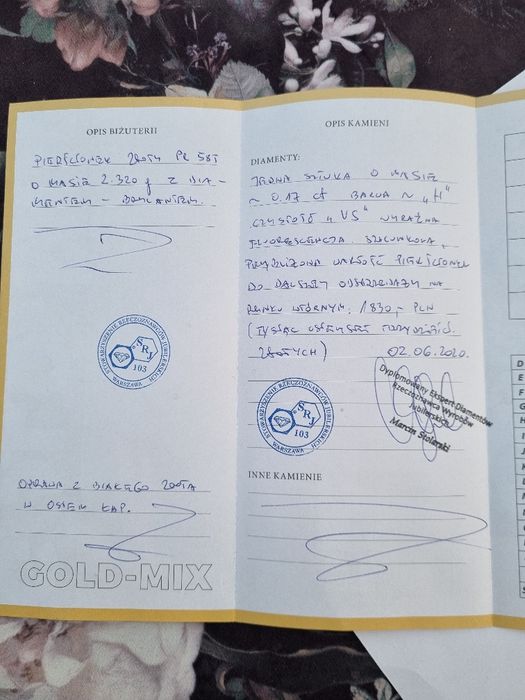 OPIS BIŻUTERII
PIERŚCIONEK ZŁOTY PR. 585
O MASIE 2.320 g Z DIA-
MENTEM - BRYLANTEM.
STOWARZYSZENIE RZECZOZNAWCÓW JUBILERSKICH
SRJ
103
WARSZAWA
OPRAWA Z BIAŁEGO ZŁOTA
W OSIEM ŁAP.
GOLD-MIX
OPIS KAMIENI
DIAMENTY:
JEDNA SZTUKA O MASIE
~ 0.17 ct BARWA ~ „H"
CZYSTOŚĆ „VS" WYRAŹNA
FLUORESCENCJA. SZACUNKOWA,
PRZYBLIŻONA WARTOŚĆ PIERŚCIONKA
DO DALSZEJ ODSPRZEDAŻY NA
RYNKU WTÓRNYM: 1830,- PLN
(TYSIĄC OSIEMSET TRZYDZIEŚCI
ZŁOTYCH) 02.06.2020.
STOWARZYSZENIE RZECZOZNAWCÓW JUBILERSKICH
SRJ
103
WARSZAWA
Dyplomowany Ekspert Diamentów
Rzeczoznawca Wyrobów
Jubilerskich
Marcin Stolarski
INNE KAMIENIE
D
E
F
G
H
I
J
K
L